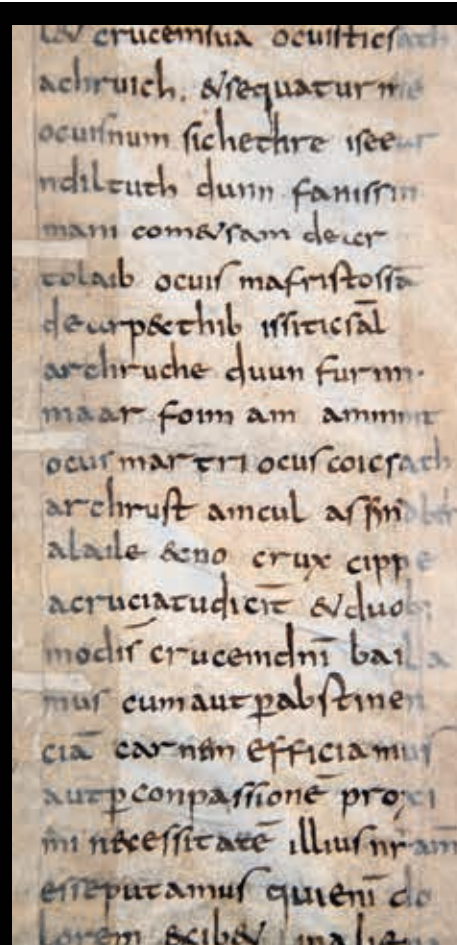 l& crucemsua ocuisticsath
achruich. &sequatur me
ocuisnum sichethre iseeur
ndiltuth dunn fanissin
mani com&sam de ar
tolaib ocuis mafristossā
dearpecthib issiticsāl
archruche duun furnn·
maar foim am ammint
ocus martri ocus coicsath
archrust amcul
alaile &no crux cippe
acruciatudicit̄ &duob;
modis̄ crucemdnī baiula
mus cumaut ꝑabstinen
ciā carnem efficiamus
autꝑconpassionē proxi
mi necessitatē illiusnr̄am
esseputamus quienī do
lorem &cib&